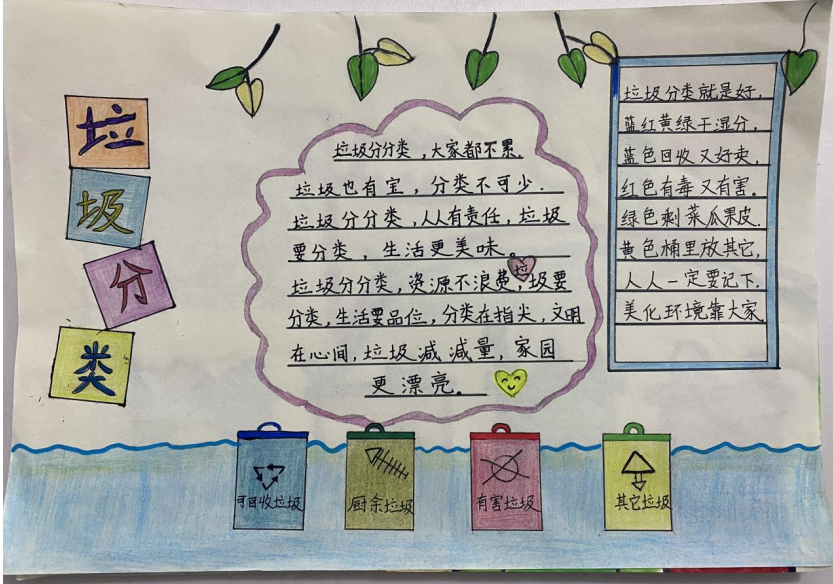 垃
圾
分
类
垃圾分分类，大家都不累.
垃圾也有宝，分类不可少.
垃圾分分类，从人有责任，垃圾
要分类，生活更美味。
垃
垃圾分分类，资源不浪费，圾要
分类，生活要品位，分类在指尖，文明
在心间，垃圾减减量，家园
更漂亮。
垃圾分类就是好，
蓝红黄绿干湿分，
蓝色回收又好卖，
红色有毒又有害.
绿色剩菜瓜果皮.
黄色桶里放其它，
人人一定要记下.
美化环境靠大家
可回收垃圾
厨余垃圾
有害垃圾
其它垃圾